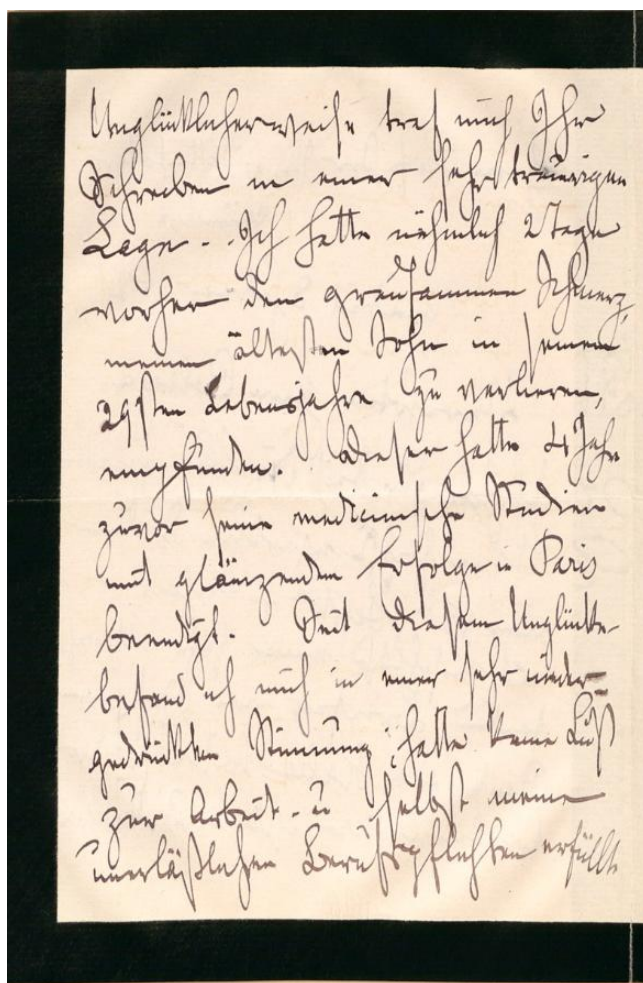 Unglücklicherweise traf mich Ihr
Schreiben in einer sehr traurigen
Lage. Ich hatte nähmlich 2 Tage
vorher den grausammen Schmerz,
meinen ältesten Sohn in seinem
29sten Lebensjahre zu verlieren,
empfunden. Dieser hatte 4 Jahr
zuvor seine medicinische Studien
mit glänzendem Erfolge in Paris
beendigt. Seit diesem Unglücke
befand ich mich in einer sehr nieder-
gedrückten Stimmung; hatte keine Lust
zur Arbeit - u selbst meine
unerläßlichen Berufspflichten erfüllte